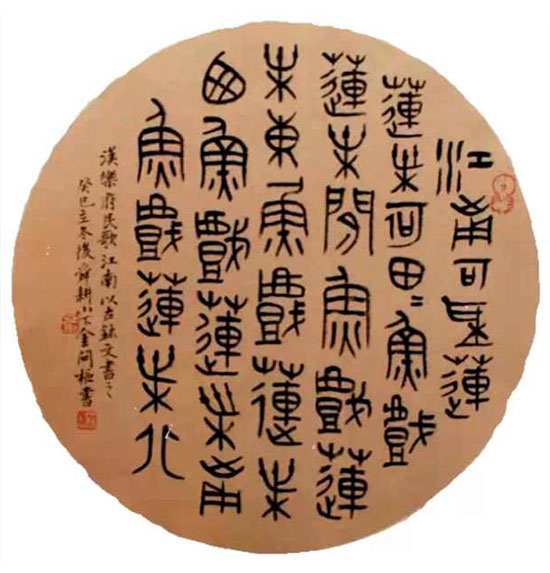 江南可采蓮
蓮葉何田〻魚戲
蓮葉間魚戲蓮
葉東魚戲蓮葉
西魚戲蓮葉南
魚戲蓮葉北
漢樂府民歌江南以古鉥文書之
癸巳立冬後耕金問書